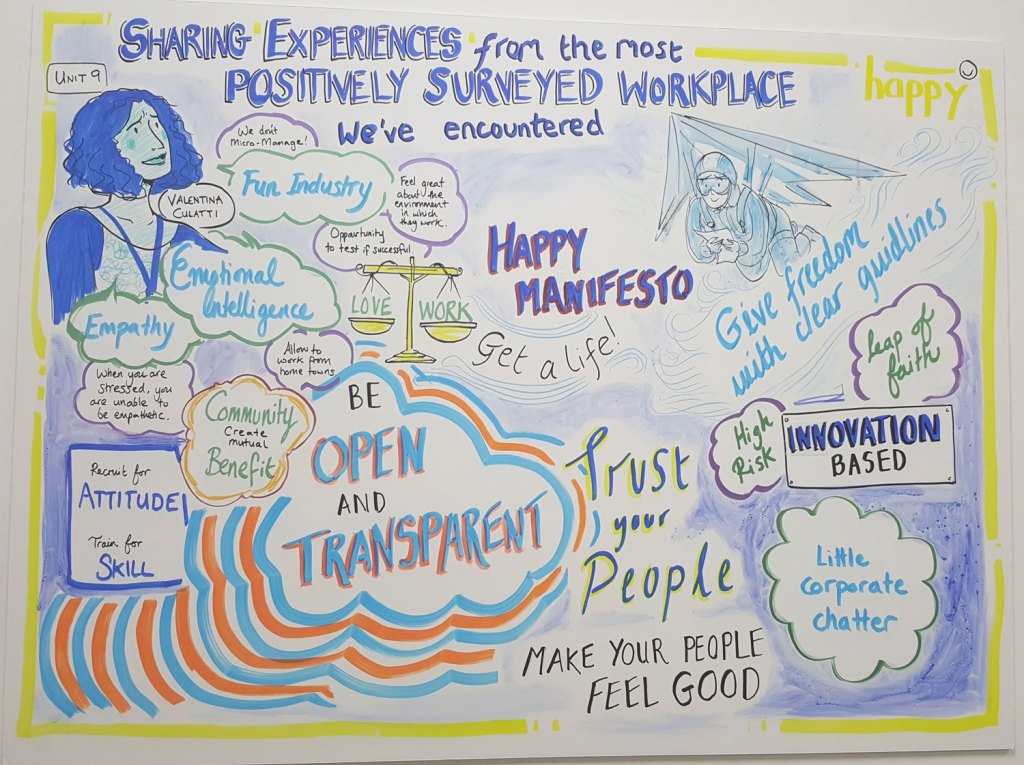 SHARING EXPERIENCES from the most
POSITIVELY SURVEYED WORKPLACE
We've encountered
UNIT 9
happy
We don't
Micro-Manage!
Fun Industry
VALENTINA
CULATTI
Feel great
about the
environment
in which
they work.
Opportunity
to test if successful.
Emotional
Intelligence
Empathy
When you are
stressed, you
are unable to
be empathetic.
LOVE
WORK
Allow to
work from
home towns
HAPPY
MANIFESTO
Get a life!
Give freedom
with clear guidlines
Leap of
faith
High
Risk
INNOVATION
BASED
Community
Create
mutual
Benefit
Recruit for
ATTITUDE
Train for
SKILL
BE
OPEN
AND
TRANSPARENT
Trust
your
People
MAKE YOUR PEOPLE
FEEL GOOD
Little
corporate
chatter